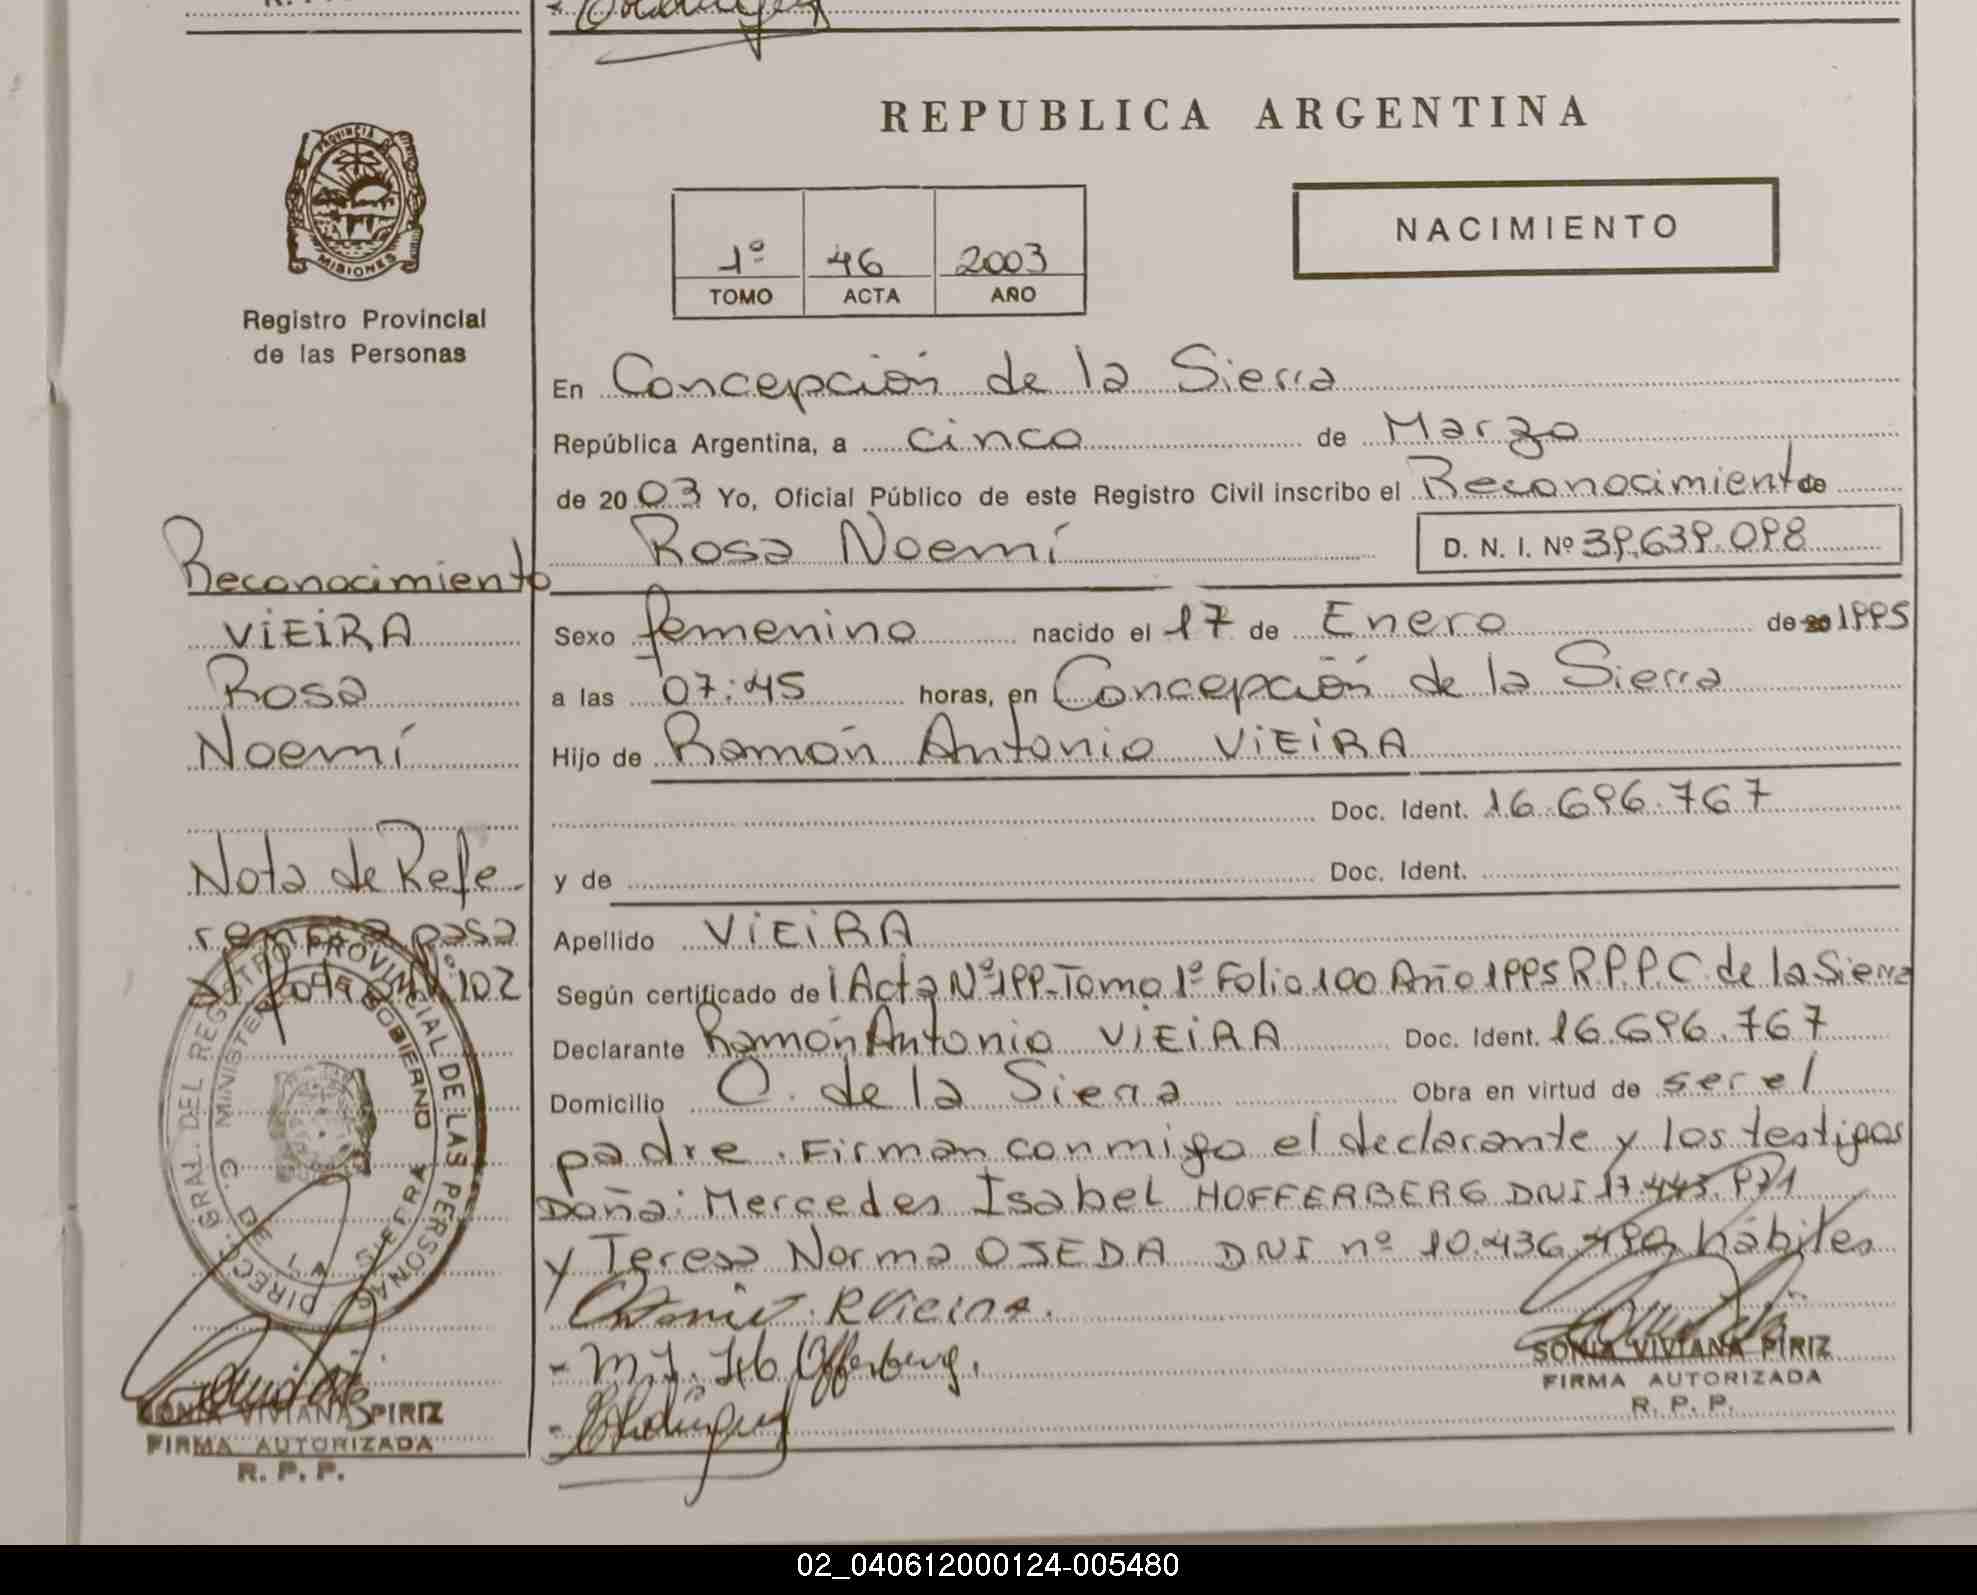 REPUBLICA ARGENTINA
PROVINCIA DE
MISIONES
Registro Provincial
de las Personas
1º 46 2003
TOMO ACTA AÑO
NACIMIENTO
En Concepción de la Sierra
República Argentina, a cinco de Marzo
de 2003 Yo, Oficial Público de este Registro Civil inscribo el Reconocimiento de
Rosa Noemí D. N. I. Nº 39.639.098
Sexo femenino nacido el 17 de Enero de 20 1995
a las 07:45 horas, en Concepción de la Sierra
Hijo de Ramón Antonio VIEIRA
Doc. Ident. 16.696.767
y de Doc. Ident.
Apellido VIEIRA
Según certificado de l Acta Nº199-Tomo 1º Folio 100 Año 1995 R.P.P. C. de la Sierra
Declarante Ramón Antonio VIEIRA Doc. Ident. 16.696.767
Domicilio C. de la Sierra Obra en virtud de ser el
padre. Firman conmigo el declarante y los testigos
Doña: Mercedes Isabel HOFFERBERG DNI 17.443.971
y Teresa Norma OJEDA DNI nº 10.436. hábiles
R Vieira.
SONIA VIVIANA PIRIZ
FIRMA AUTORIZADA
R. P. P.
Reconocimiento
VIEIRA
Rosa
Noemí
Nota de Refe-
rencia pasa
al Folio Nº 102
DIREC. GRAL. DEL REGISTRO PROVINCIAL DE LAS PERSONAS
MINISTERIO DE GOBIERNO
C. DE LA SIERRA
SONIA VIVIANA PIRIZ
FIRMA AUTORIZADA
R. P. P.
02_040612000124-005480